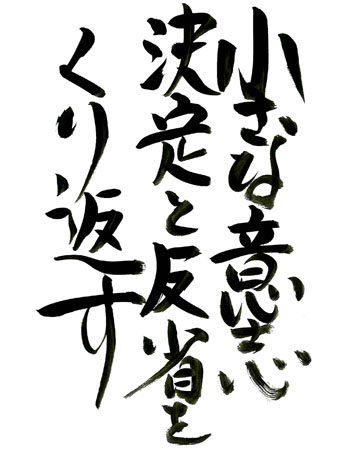 小さな意志
決定と反省を
くり返す